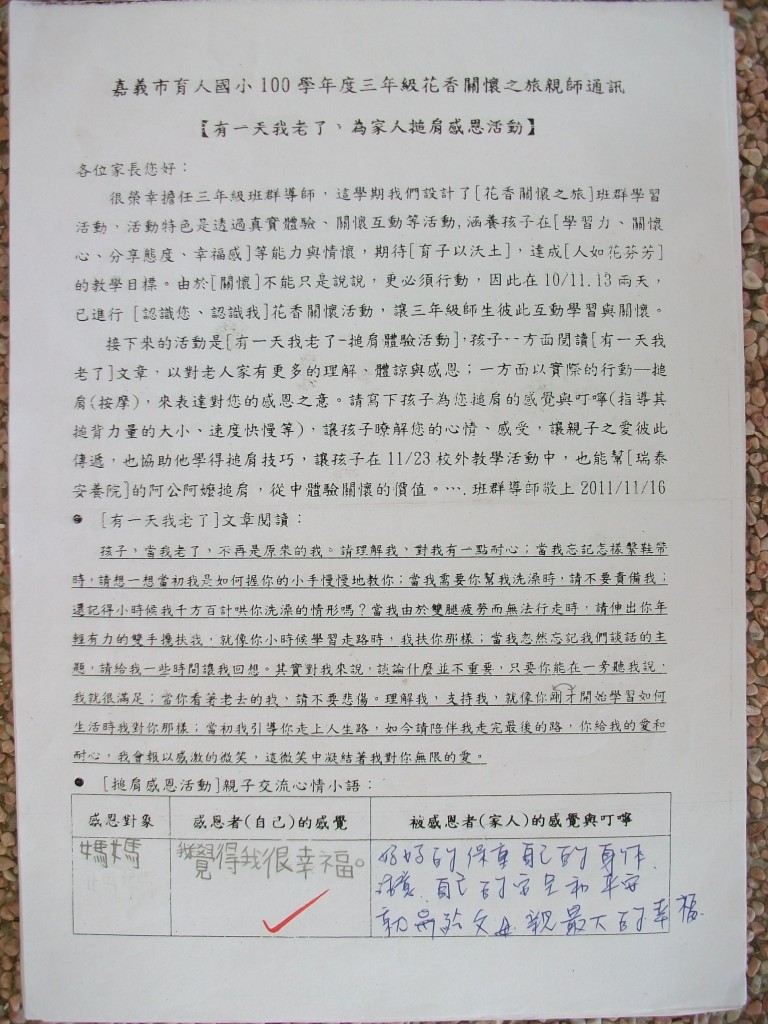 嘉義市育人國小 100 學年度三年級花香關懷之旅親師通訊
【有一天我老了,為家人搥肩感恩活動】
各位家長您好:
很榮幸擔任三年級班群導師,這學期我們設計了[花香關懷之旅]班群學習
活動,活動特色是透過真實體驗、關懷互動等活動,涵養孩子在[學習力、關懷
心、分享態度、幸福感]等能力與情懷,期待[育子以沃土],達成[人如花芬芳]
的教學目標。由於[關懷]不能只是說說,更必須行動,因此在 10/11.13 兩天,
已進行 [認識您、認識我]花香關懷活動,讓三年級師生彼此互動學習與關懷。
接下來的活動是[有一天我老了-搥肩體驗活動],孩子一方面閱讀[有一天我
老了]文章,以對老人家有更多的理解、體諒與感恩;一方面以實際的行動—搥
肩(按摩),來表達對您的感恩之意。請寫下孩子為您搥肩的感覺與叮嚀(指導其
搥背力量的大小、速度快慢等),讓孩子瞭解您的心情、感受,讓親子之愛彼此
傳遞,也協助他學得搥肩技巧,讓孩子在 11/23 校外教學活動中,也能幫[瑞泰
安養院]的阿公阿嬤搥肩,從中體驗關懷的價值。….班群導師敬上 2011/11/16
● [有一天我老了]文章閱讀:
孩子,當我老了,不再是原來的我。請理解我,對我有一點耐心;當我忘記怎樣繫鞋帶
時,請想一想當初我是如何握你的小手慢慢地教你;當我需要你幫我洗澡時,請不要責備我;
還記得小時候我千方百計哄你洗澡的情形嗎?當我由於雙腿疲勞而無法行走時,請伸出你年
輕有力的雙手攙扶我,就像你小時候學習走路時,我扶你那樣;當我忽然忘記我們談話的主
題,請給我一些時間讓我回想。其實對我來說,談論什麼並不重要,只要你能在一旁聽我說,
我就很滿足;當你看著老去的我,請不要悲傷。理解我,支持我,就像你剛才開始學習如何
生活時我對你那樣;當初我引導你走上人生路,如今請陪伴我走完最後的路,你給我的愛和
耐心,我會報以感激的微笑,這微笑中凝結著我對你無限的愛。
● [搥肩感恩活動]親子交流心情小語:
感恩對象 感恩者(自己)的感覺 被感恩者(家人)的感覺與叮嚀
媽媽 我覺得我很幸福。 好好的保重自己的身体
自己的安全和平安
父母親最大的幸福.